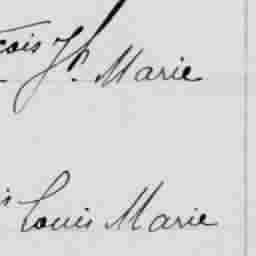 çois Jh. Marie
is Louis Marie